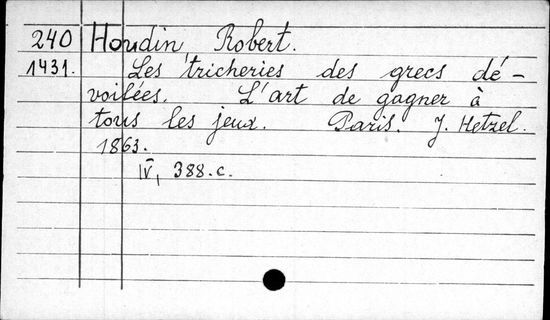 240 Houdin, Robert.
1431. Les tricheries des grecs dé-
voilées. L'art de gagner à
tous les jeux. Paris. J. Hetzel.
1863.
IV, 388.c.